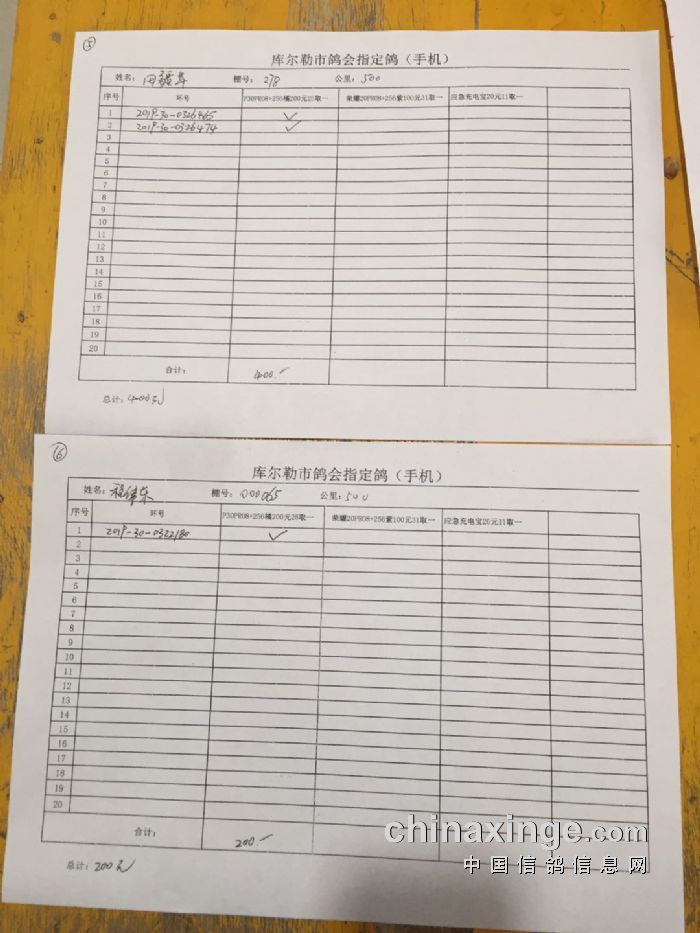 ⑤
库尔勒市鸽会指定鸽（手机）
姓名： 棚号：278 公里：500
序号 环号 P30PRO8+256橘200元25取一 荣耀20PRO8+256紫100元31取一 应急充电宝20元11取一
1 2019-30-0326465 ✓
2 2019-30-0326474 ✓
3
4
5
6
7
8
9
10
11
12
13
14
15
16
17
18
19
20
合计： 400.-
总计：400元
⑥
库尔勒市鸽会指定鸽（手机）
姓名： 棚号：000065 公里：500
序号 环号 P30PRO8+256橘200元25取一 荣耀20PRO8+256紫100元31取一 应急充电宝20元11取一
1 2019-30-0322180 ✓
2
3
4
5
6
7
8
9
10
11
12
13
14
15
16
17
18
19
20
合计： 200.-
总计：200元
chinaxinge.com
中国信鸽信息网